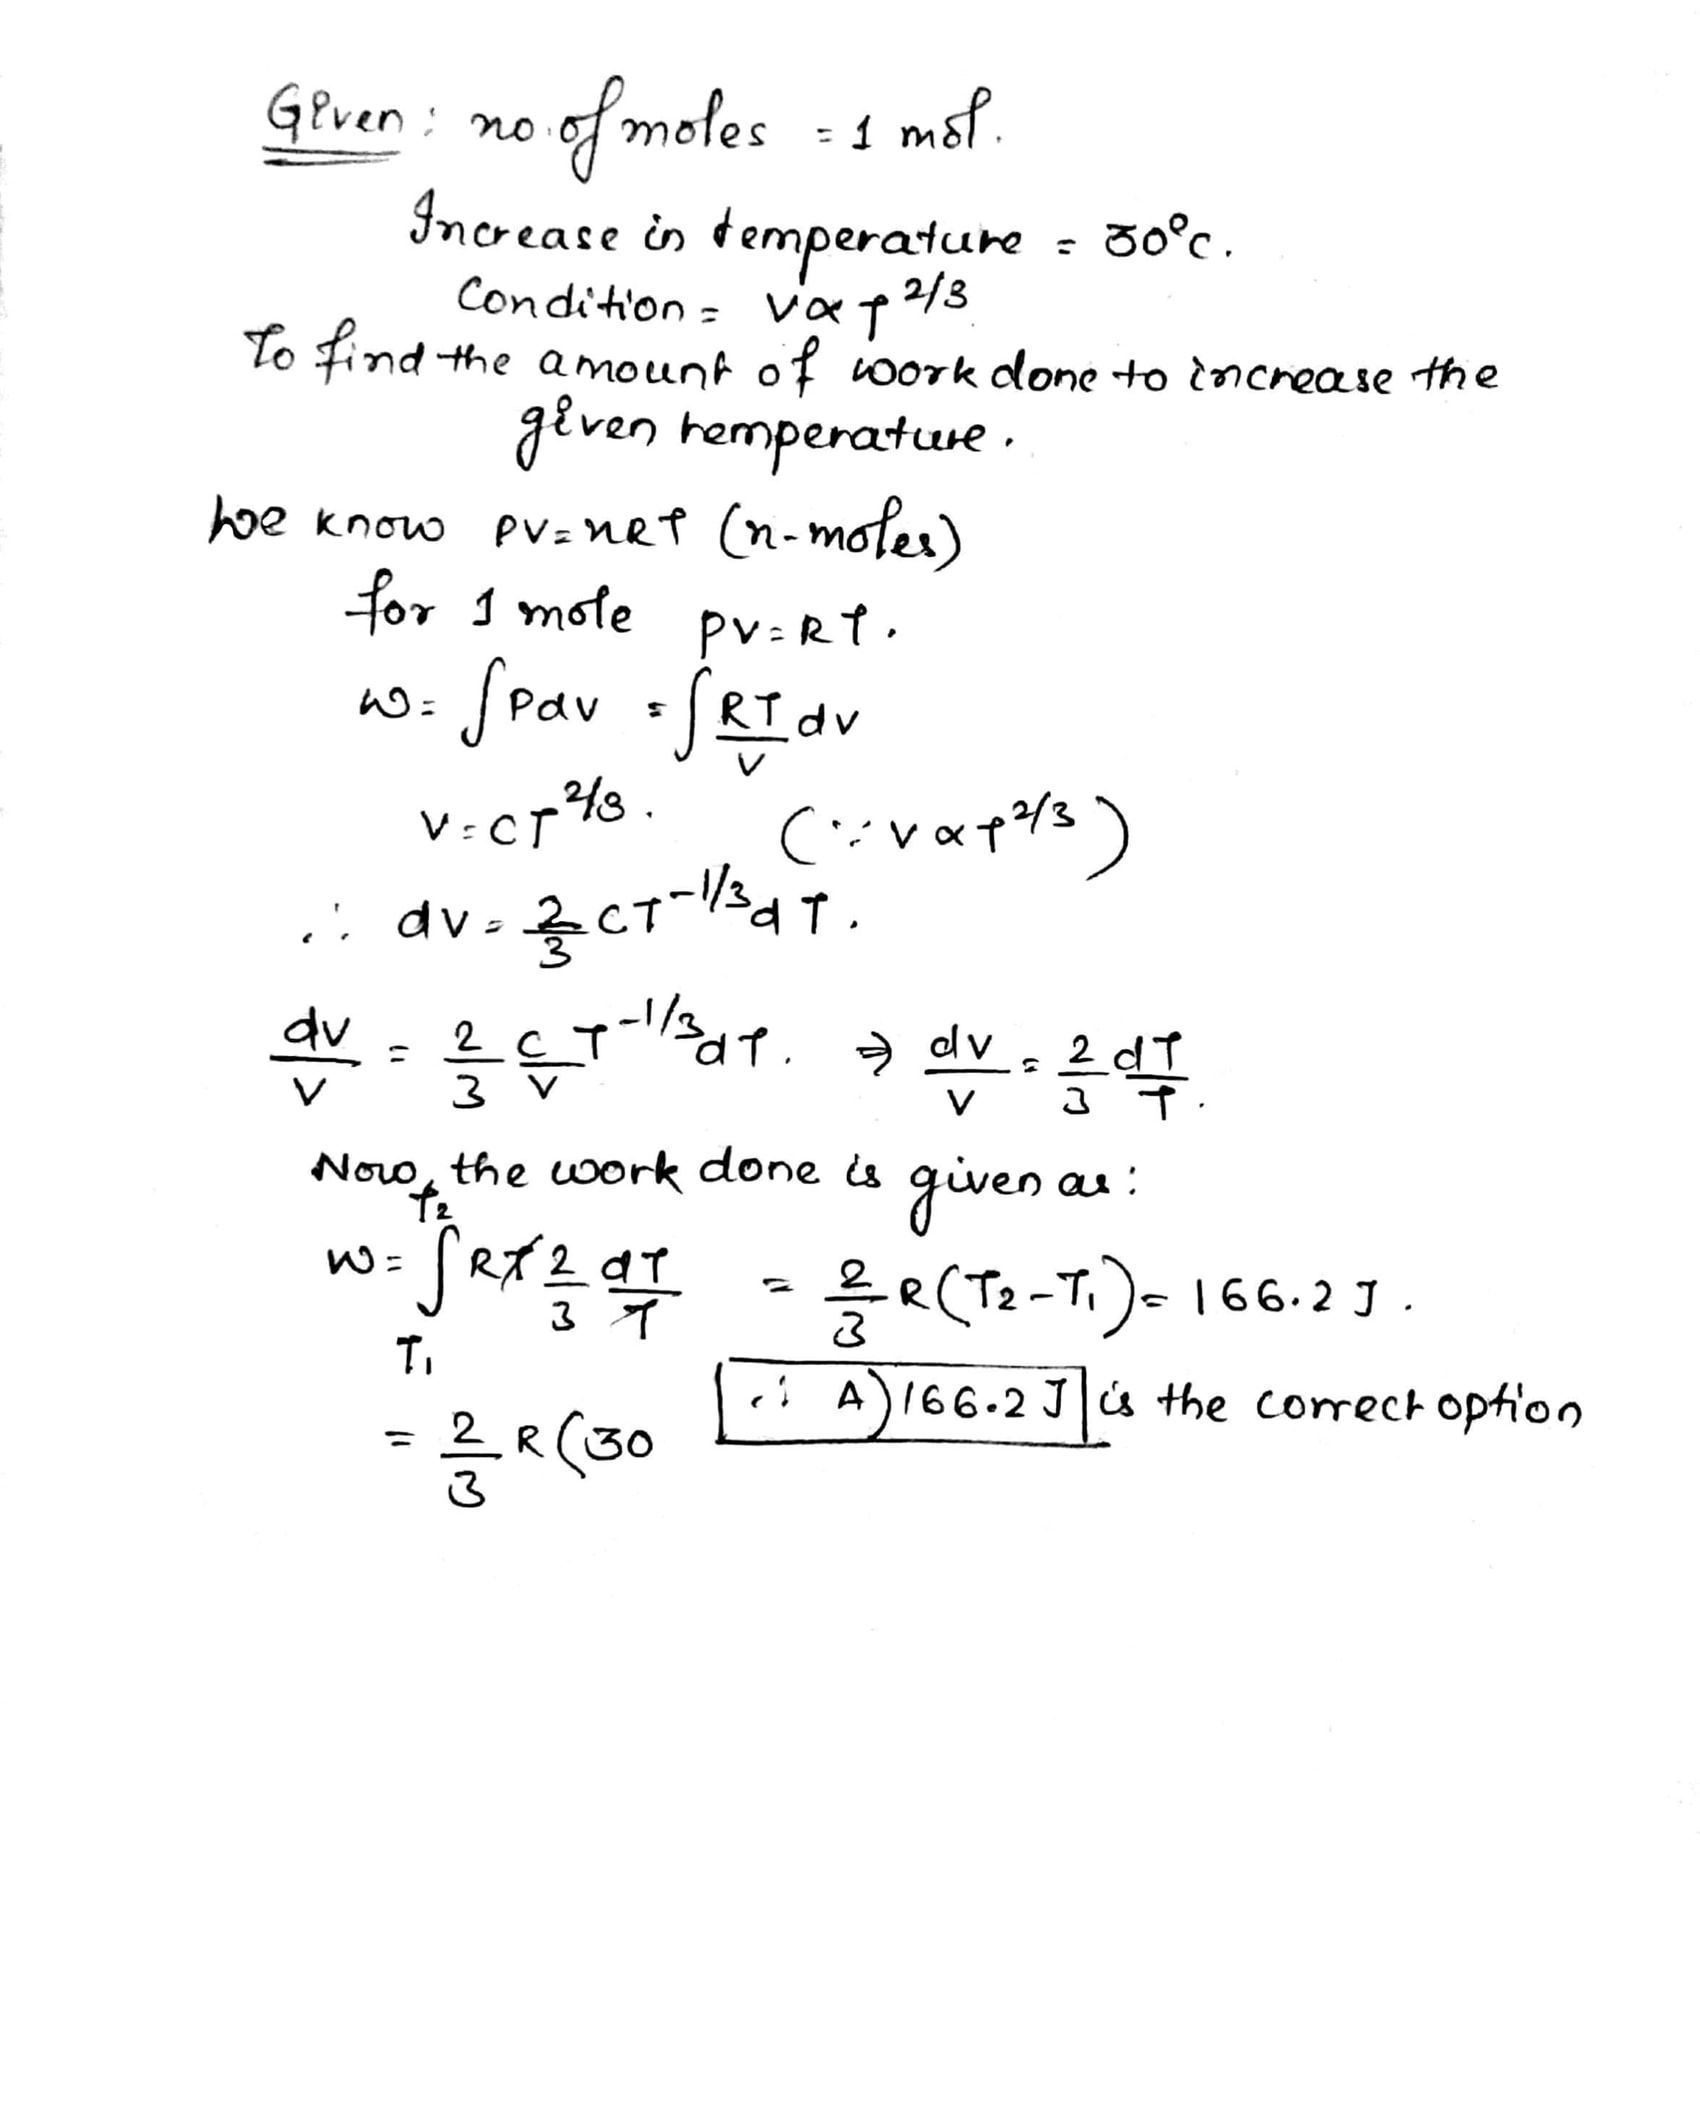 Given: no. of moles = 1 mol.
Increase in temperature = 30°c.
Condition = V∝T^2/3
To find the amount of work done to increase the
given temperature.
We know PV=nRT (n-moles)
for 1 mole PV=RT.
W= ∫PdV = ∫RT/V dV
V=CT^2/3. (∵ V∝T^2/3)
∴ dV = 2/3 CT^-1/3 dT.
dV/V = 2/3 C/V T^-1/3 dT. ⇒ dV/V = 2/3 dT/T.
Now, the work done is given as:
W= ∫_T1^T2 RT 2/3 dT/T = 2/3 R(T2-T1) = 166.2 J.
∴ A) 166.2 J is the correct option
= 2/3 R(30